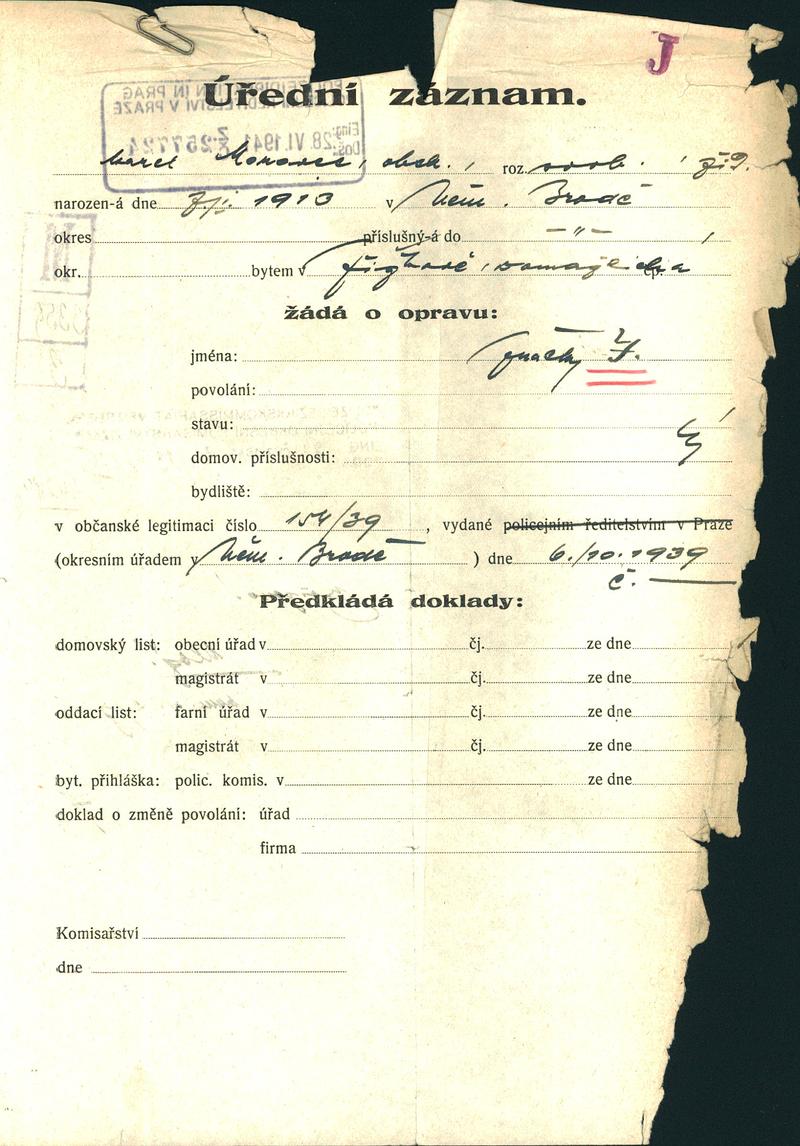 J
Úřední záznam.
POLIZEIDIREKTION IN PRAG
ŘEDITELSTVÍ V PRAZE
Eing.:
Doš.: 28. VI. 1941 257724
Karel , obch. , roz. svob. , žid.
narozen-á dne 1913 v Něm. Brodě
okres příslušný-á do — " — ,
okr. bytem v čp.
žádá o opravu:
jména: značky J.
povolání:
stavu:
domov. příslušnosti:
bydliště:
v občanské legitimaci číslo 154/39 , vydané policejním ředitelstvím v Praze
(okresním úřadem v Něm. Brodě ) dne 6./10. 1939
č. —
Předkládá doklady:
domovský list: obecní úřad v čj. ze dne
magistrát v čj. ze dne
oddací list: farní úřad v čj. ze dne
magistrát v čj. ze dne
byt. přihláška: polic. komis. v ze dne
doklad o změně povolání: úřad
firma
Komisařství
dne